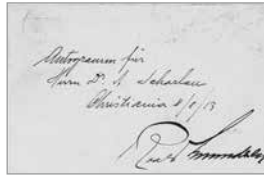 Autogramm für
Herrn Dr. A. Scharlau
Christiania 8/5/13
Roald Amundsen